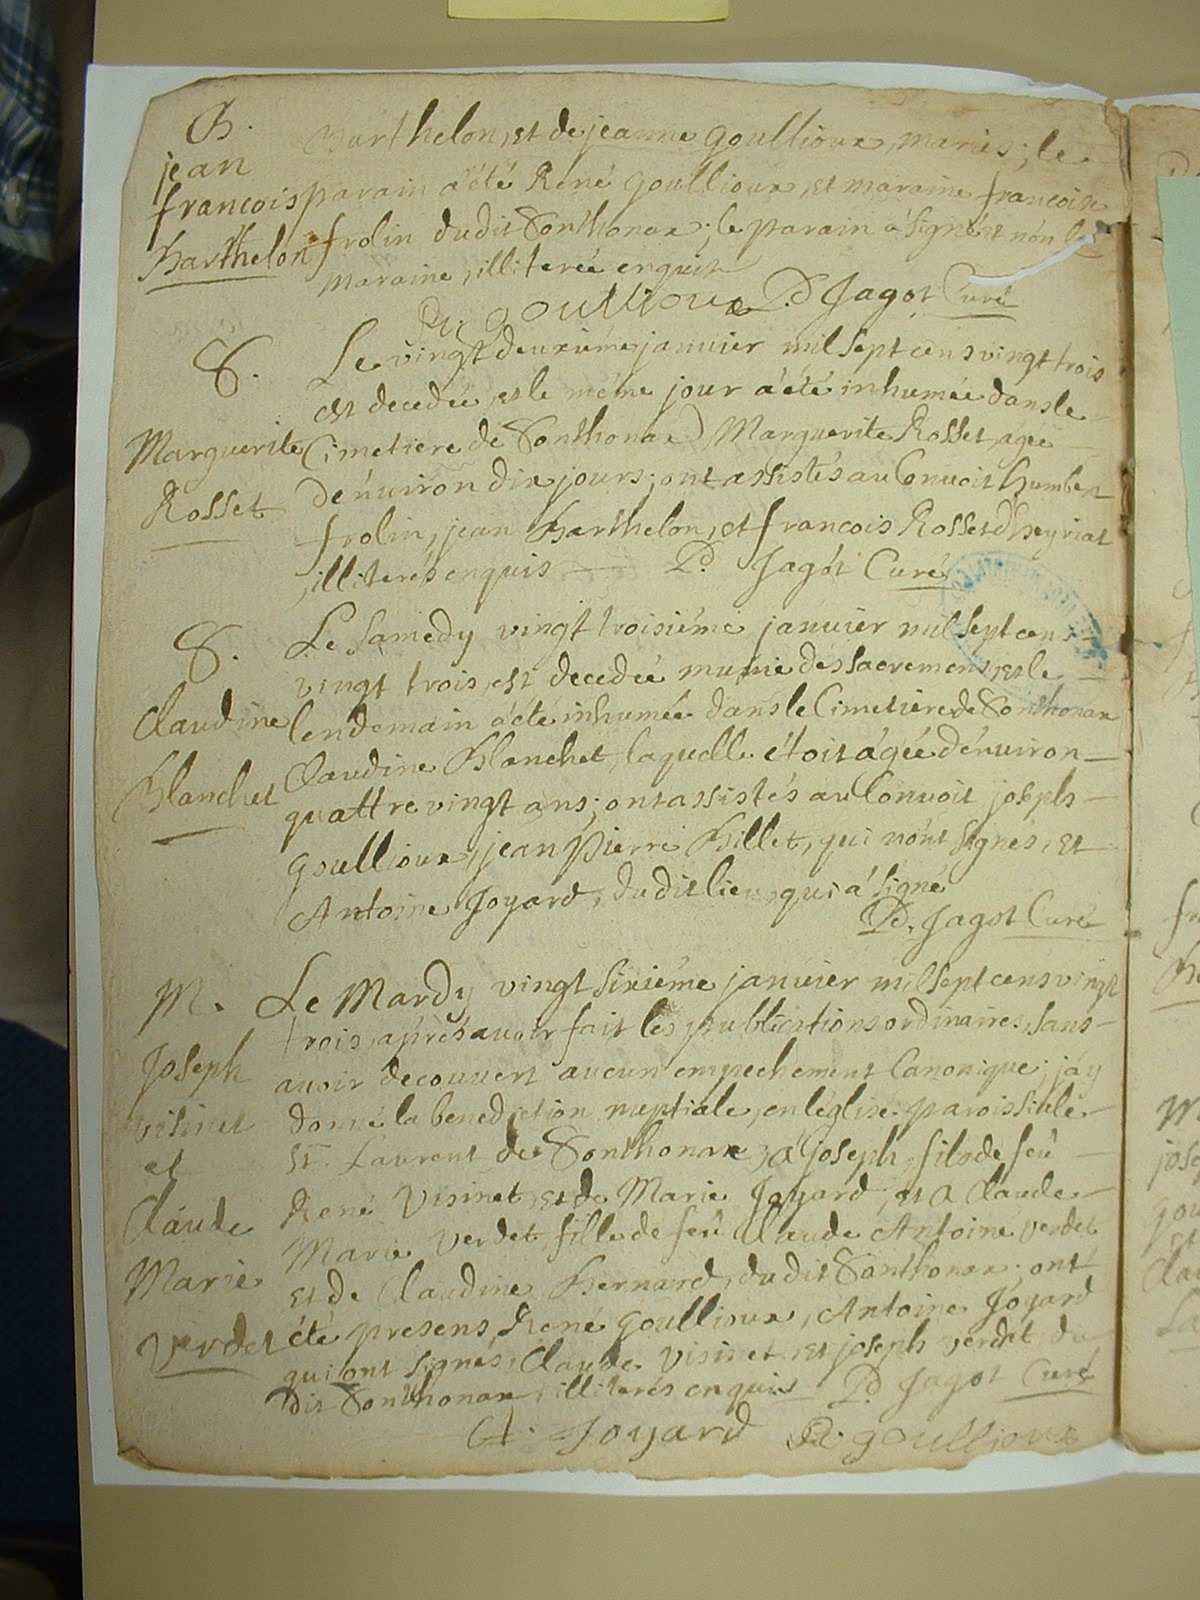 B.
jean
francois
Barthelon
Barthelon, et de jeanne goullioux, mariés; le
parain a été René goullioux, et maraine francoise
frolin dudit Sonthonax; le parain á signé et nón la
maraine, illiterée enquise
R. goullioux P.d Jagot Curé
S.
Marguerite
Rosset
Le vingt deuxiéme januier mil sept cens vingt trois
est decedée, et le méme jour a été inhumée dans le
Cimetiere de Sonthonax) Marguerite Rosset, agée
dénuiron dix jours; ont assistés au Conuoit humbert
frolin, jean Barthelon, et francois Rosset dheyriat
illiterés enquis — P.d Jagot Curé
S.
Claudine
Blanchet
Le Samedy vingt troisiéme januier mil sept cens
vingt trois, est decedée munie des sacremens, et le
lendemain a été inhumée dans le Cimetiere de Sonthonax
Claudine Blanchet, laquelle étoit ágée dénuiron
quattre vingt ans; ont assistés au Conuoit joseph
goullioux, jean pierre Billet, qui nónt signés, et
Antoine Joyard, dudit lieu, qui á signé
P.d Jagot Curé
M.
Joseph
visinet
et
Claude
Marie
verdet
Le Mardy vingt sixiéme januier mil sept cens vingt
trois, aprés auoir fait les publications ordinaires, sans
auoir decouuert aucun empechement Canonique; jáy
donné la benediction nuptiale, en léglise paroissiale
St. Laurent de Sonthonax, á joseph, fils de feu
René Visinet, et de Marie Joyard, et a Claude
Marie verdet, fille de feu Claude Antoine verdet
et de Claudine Bernard, dudit Sonthonax; ont
été presens René goullioux, Antoine Joyard
qui ont signés, Claude visinet, et joseph verdet du
dit Sonthonax, illiterés enquis P.d Jagot Curé
A. Joyard R. goullioux